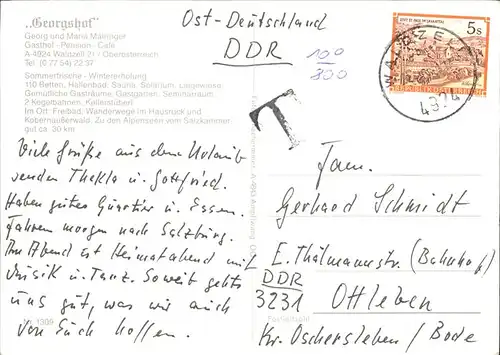 „Georgshof"
Georg und Maria Mairinger
Gasthof - Pension - Café
A-4924 Waldzell 21 / Oberösterreich
Tel. (0 77 54) 22 37
Sommerfrische - Wintererholung
150 Betten, Hallenbad, Sauna, Solarium, Liegewiese
Gemütliche Gasträume, Gastgarten, Seminarraum
2 Kegelbahnen, Kellerstüberl
Im Ort: Freibad, Wanderwege im Hausruck und
Kobernaußerwald. Zu den Alpenseen vom Salzkammer-
gut ca. 30 km
Ost-Deutschland
DDR
100
800
T
5s
STIFT ST. PAUL IM LAVANTTAL
REPUBLIK ÖSTERREICH
WALDZELL
4924
Viele Grüße aus dem Urlaub
senden Thekla u. Gottfried.
Haben gutes Quartier u. Essen.
Fahren morgen nach Salzburg.
Am Abend ist Heimatabend mit
Musik u. Tanz. Soweit gehts
uns gut, was wir auch
von Euch hoffen.
Nr. 1309
Fam.
Gerhard Schmidt
E. Thälmannstr. (Bahnhof)
DDR
3231 Ottleben
Postleitzahl
Kr. Oschersleben / Bode